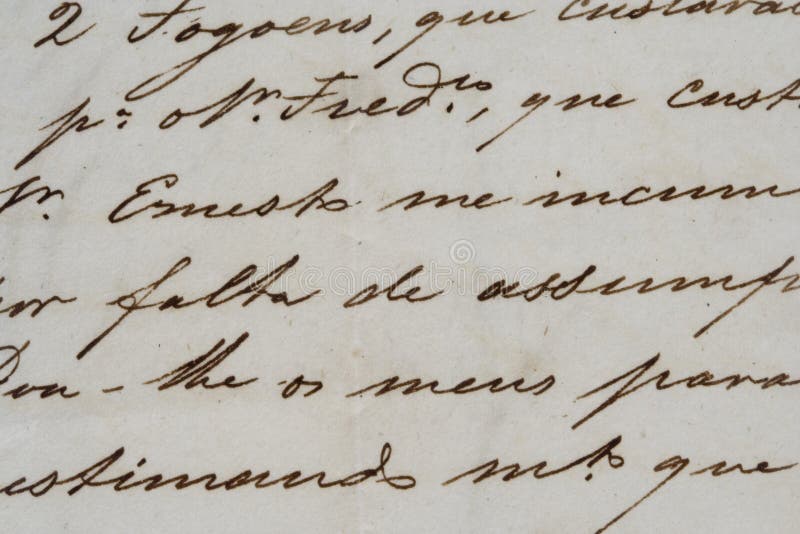 2 Fogoens, que custarao
p.ª o Sr. Fred.co, que cust
Sr. Ernesto me incum
or falta de assump
Dou-lhe os meus para
estimando m.to que